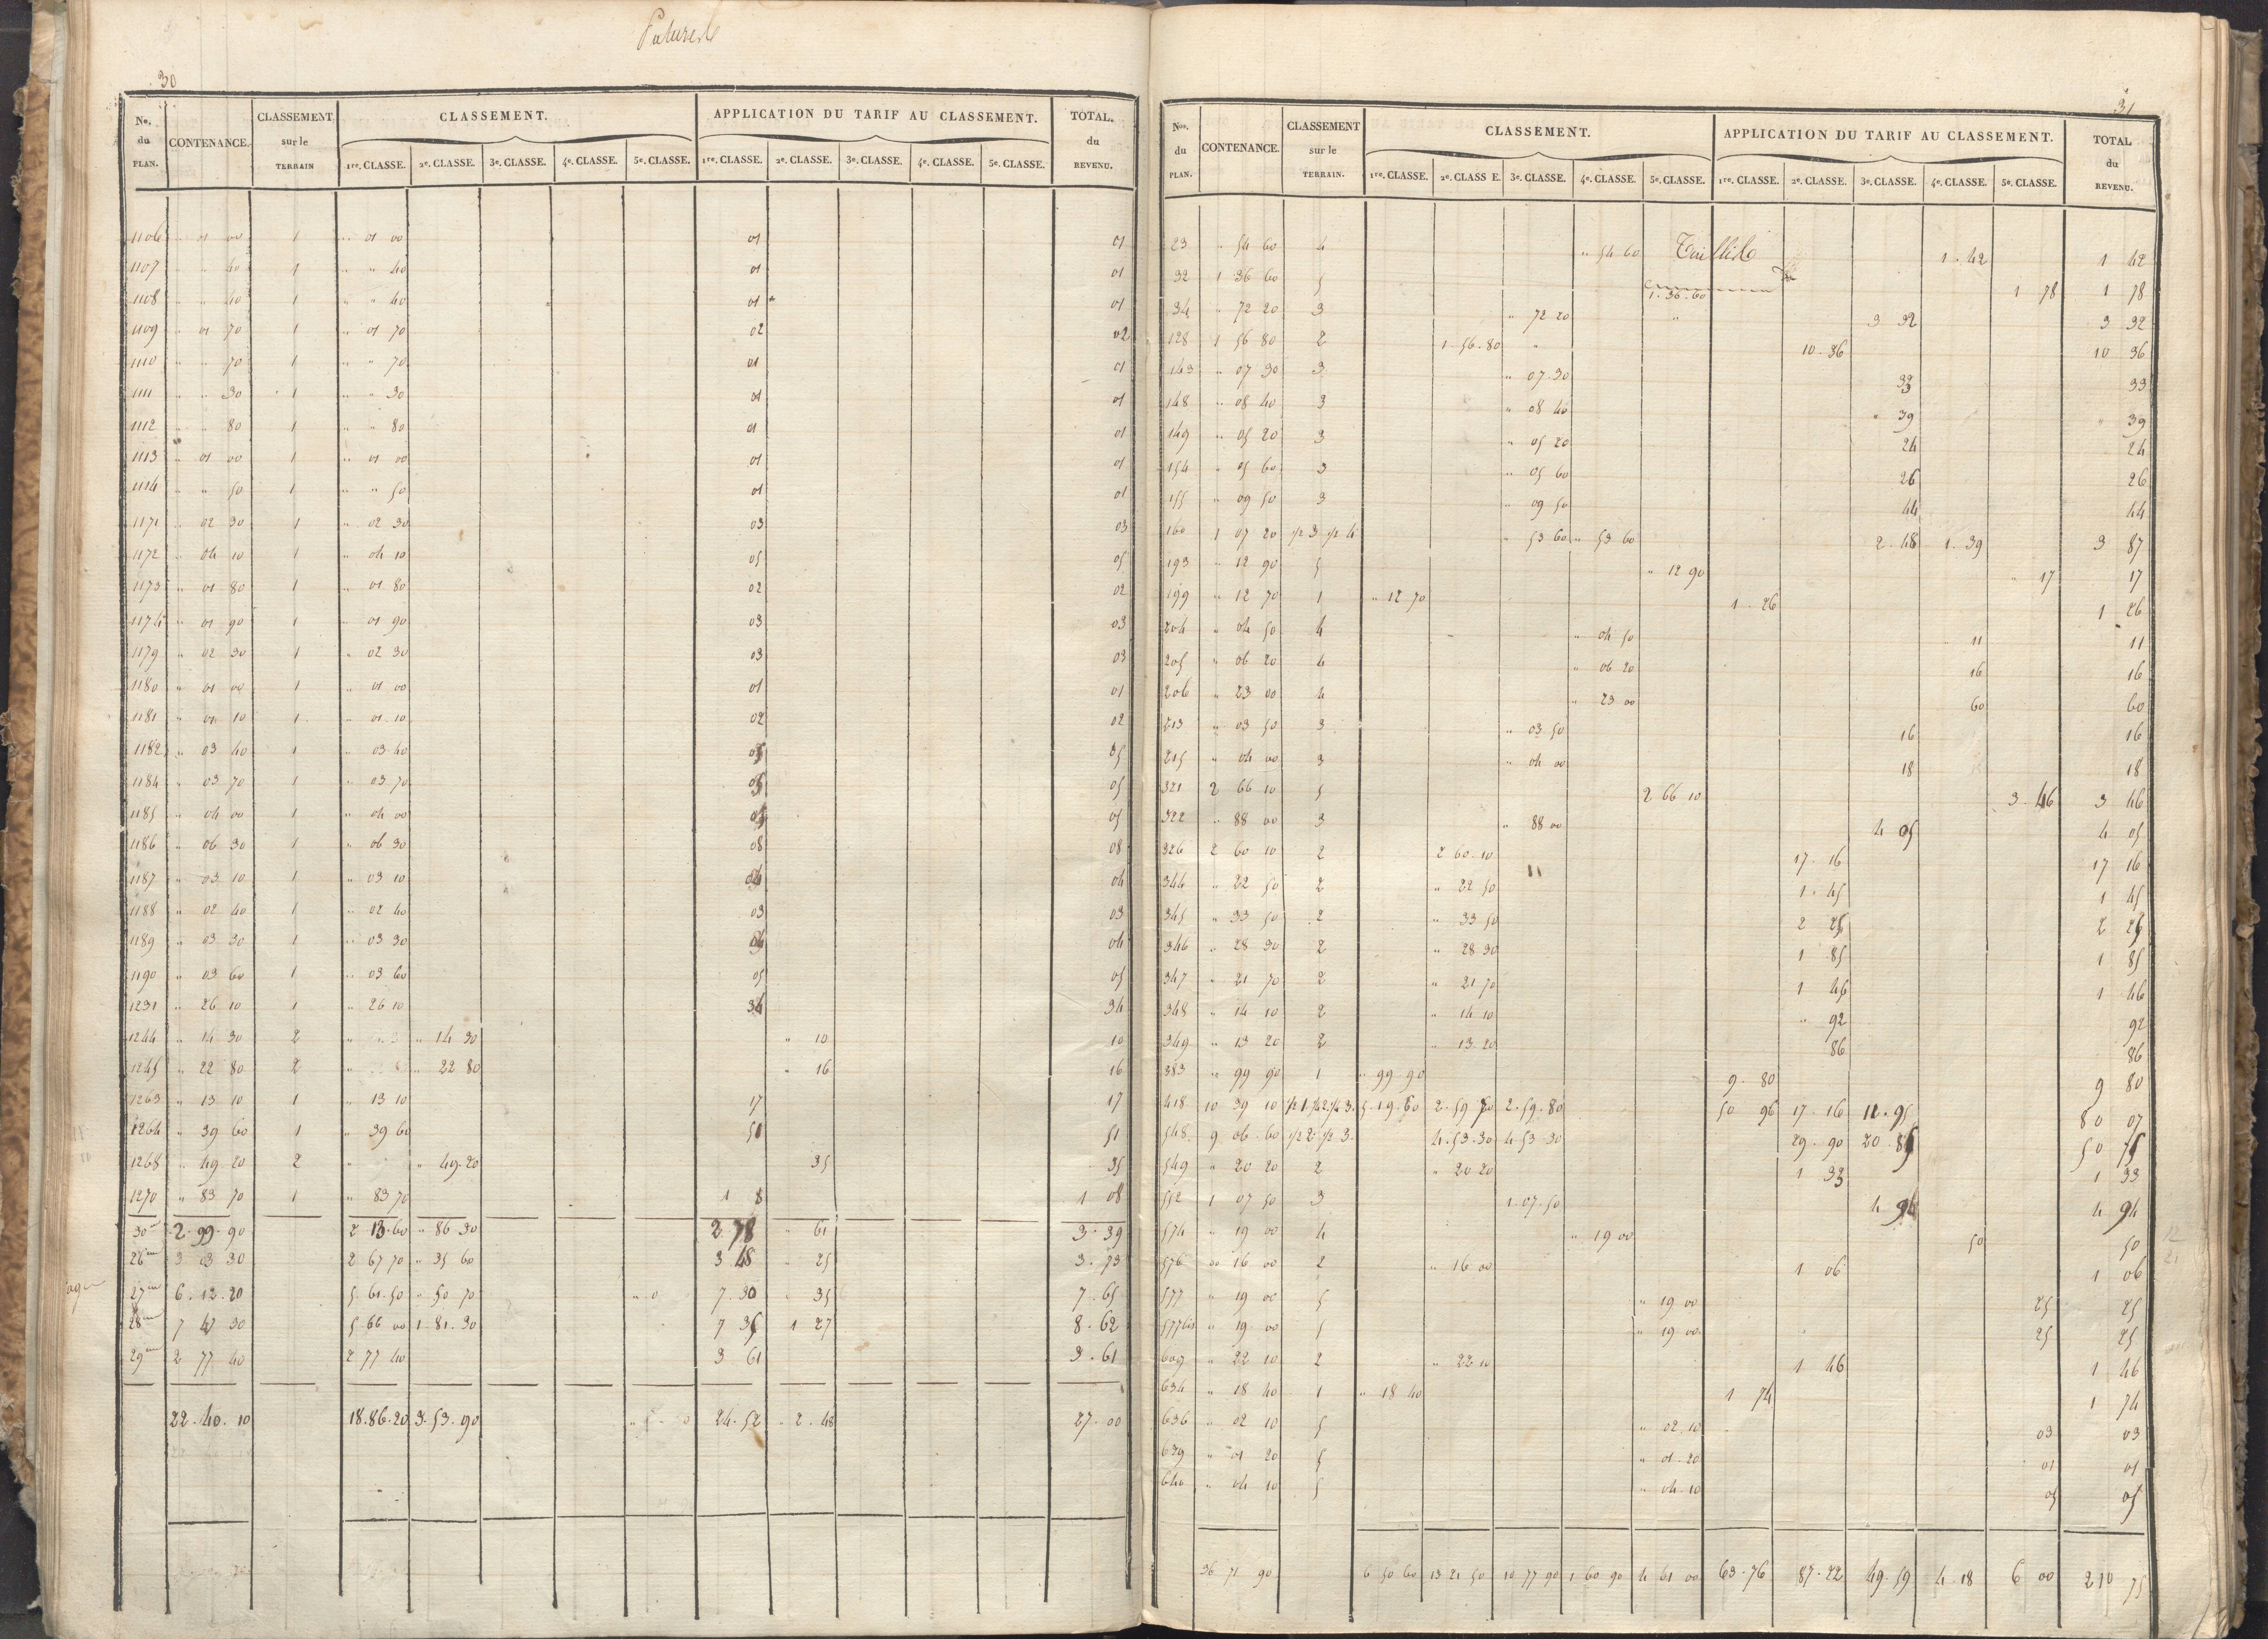 Pature
30
No. du PLAN. CONTENANCE. CLASSEMENT sur le TERRAIN CLASSEMENT. APPLICATION DU TARIF AU CLASSEMENT. TOTAL. du REVENU.
1re. CLASSE. 2e. CLASSE. 3e. CLASSE. 4e. CLASSE. 5e. CLASSE. 1re. CLASSE. 2e. CLASSE. 3e. CLASSE. 4e. CLASSE. 5e. CLASSE.
1106 " 01 00 1 " 01 00 01 01
1107 " " 40 1 " " 40 01 01
1108 " " 40 1 " " 40 01 01
1109 " 01 70 1 " 01 70 02 02
1110 " " 70 1 " " 70 01 01
1111 " " 30 1 " " 30 01 01
1112 " " 80 1 " " 80 01 01
1113 " 01 00 1 " 01 00 01 01
1114 " " 50 1 " " 50 01 01
1171 " 02 30 1 " 02 30 03 03
1172 " 04 10 1 " 04 10 05 05
1173 " 01 80 1 " 01 80 02 02
1174 " 01 90 1 " 01 90 03 03
1179 " 02 30 1 " 02 30 03 03
1180 " 01 00 1 " 01 00 01 01
1181 " 01 10 1 " 01 10 02 02
1182 " 03 40 1 " 03 40 05 05
1184 " 03 70 1 " 03 70 05 05
1185 " 04 00 1 " 04 00 05 05
1186 " 06 30 1 " 06 30 08 08
1187 " 03 10 1 " 03 10 04 04
1188 " 02 40 1 " 02 40 03 03
1189 " 03 30 1 " 03 30 04 04
1190 " 03 60 1 " 03 60 05 05
1231 " 26 10 1 " 26 10 34 34
1244 " 14 30 2 " " 14 30 " 10 10
1245 " 22 80 2 " " 22 80 " 16 16
1263 " 13 10 1 " 13 10 17 17
1264 " 39 60 1 " 39 60 51 51
1268 " 49 20 2 " " 49.20 35 35
1270 " 83 70 1 " 83 70 1 8 1 08
30 2.99.90 2 13.60 " 86 30 2 78 " 61 3.39
26 3 03 30 2 67 70 " 35 60 3 48 " 25 3.73
27 6.12.20 5.61.50 " 50 70 7.30 " 35 7.65
28 7 47 30 5.66 00 1.81.30 7 35 1 27 8.62
29 2 77 40 2 77 40 3 61 3.61
22.40.10 18.86.20 3.53.90 24.52 " 2.48 27.00
31
Nos. du PLAN. CONTENANCE. CLASSEMENT sur le TERRAIN. CLASSEMENT. APPLICATION DU TARIF AU CLASSEMENT. TOTAL du REVENU.
1re. CLASSE. 2e. CLASS E. 3e. CLASSE. 4e. CLASSE. 5e. CLASSE. 1re. CLASSE. 2e. CLASSE. 3e. CLASSE. 4e. CLASSE. 5e. CLASSE.
Taillis
23 " 54 60 4 " 54 60 1.42 1 42
32 1 36 60 5 1.36.60 1 78 1 78
34 " 72 20 3 " 72 20 3 32 3 32
128 1 56 80 2 1.56.80 10.36 10 36
143 " 07 30 3 " 07.30 33 33
148 " 08 40 3 " 08 40 " 39 " 39
149 " 05 20 3 " 05 20 24 24
154 " 05 60 3 " 05 60 26 26
155 " 09 50 3 " 09 50 44 44
160 1 07 20 1/2 3 1/2 4 " 53 60 " 53 60 2.48 1.39 3 87
193 " 12 90 5 " 12 90 " 17 17
199 " 12 70 1 " 12 70 1.26 1 26
204 " 04 50 4 " 04 50 11 11
205 " 06 20 4 " 06 20 16 16
206 " 23 00 4 " 23 00 60 60
213 " 03 50 3 " 03.50 16 16
215 " 04 00 3 " 04 00 18 18
321 2 66 10 5 2 66 10 3.46 3 46
322 " 88 00 3 " 88 00 4 05 4 05
326 2 60 10 2 2 60.10 17.16 17 16
344 " 22 50 2 " 22 50 1.45 1 45
345 " 33 50 2 " 33 50 2 25 2 25
346 " 28 30 2 " 28 30 1 85 1 85
347 " 21 70 2 " 21 70 1 46 1 46
348 " 14 10 2 " 14 10 " 92 92
349 " 13 20 2 " 13.20 86 86
383 " 99 90 1 " 99.90 9.80 9 80
418 10 39 10 1/2 1. 1/4 2. 1/4 3. 5.19.60 2.59 70 2.59.80 50 96 17.16 11.95 80 07
548 9.06.60 1/2 2. 1/2 3. 4.53.30 4.53 30 29.90 20.85 50 75
549 " 20 20 2 " 20 20 1 33 1 33
552 1 07 50 3 1.07.50 4 94 4 94
574 " 19 00 4 " 19 00 50 50
576 " 16 00 2 " 16 00 1 06 1 06
577 " 19 00 5 " 19 00 25 25
577bis " 19 00 5 " 19 00 25 25
609 " 22 10 2 " 22 10 1 46 1 46
634 " 18 40 1 " 18 40 1 74 1 74
636 " 02 10 5 " 02.10 03 03
639 " 01 20 5 " 01.20 01 01
640 " 04 10 5 " 04.10 05 05
36 71 90 6 50 60 13 21 50 10 77 90 1 60 90 4 61 00 63.76 87.22 49.59 4.18 6 00 210 75